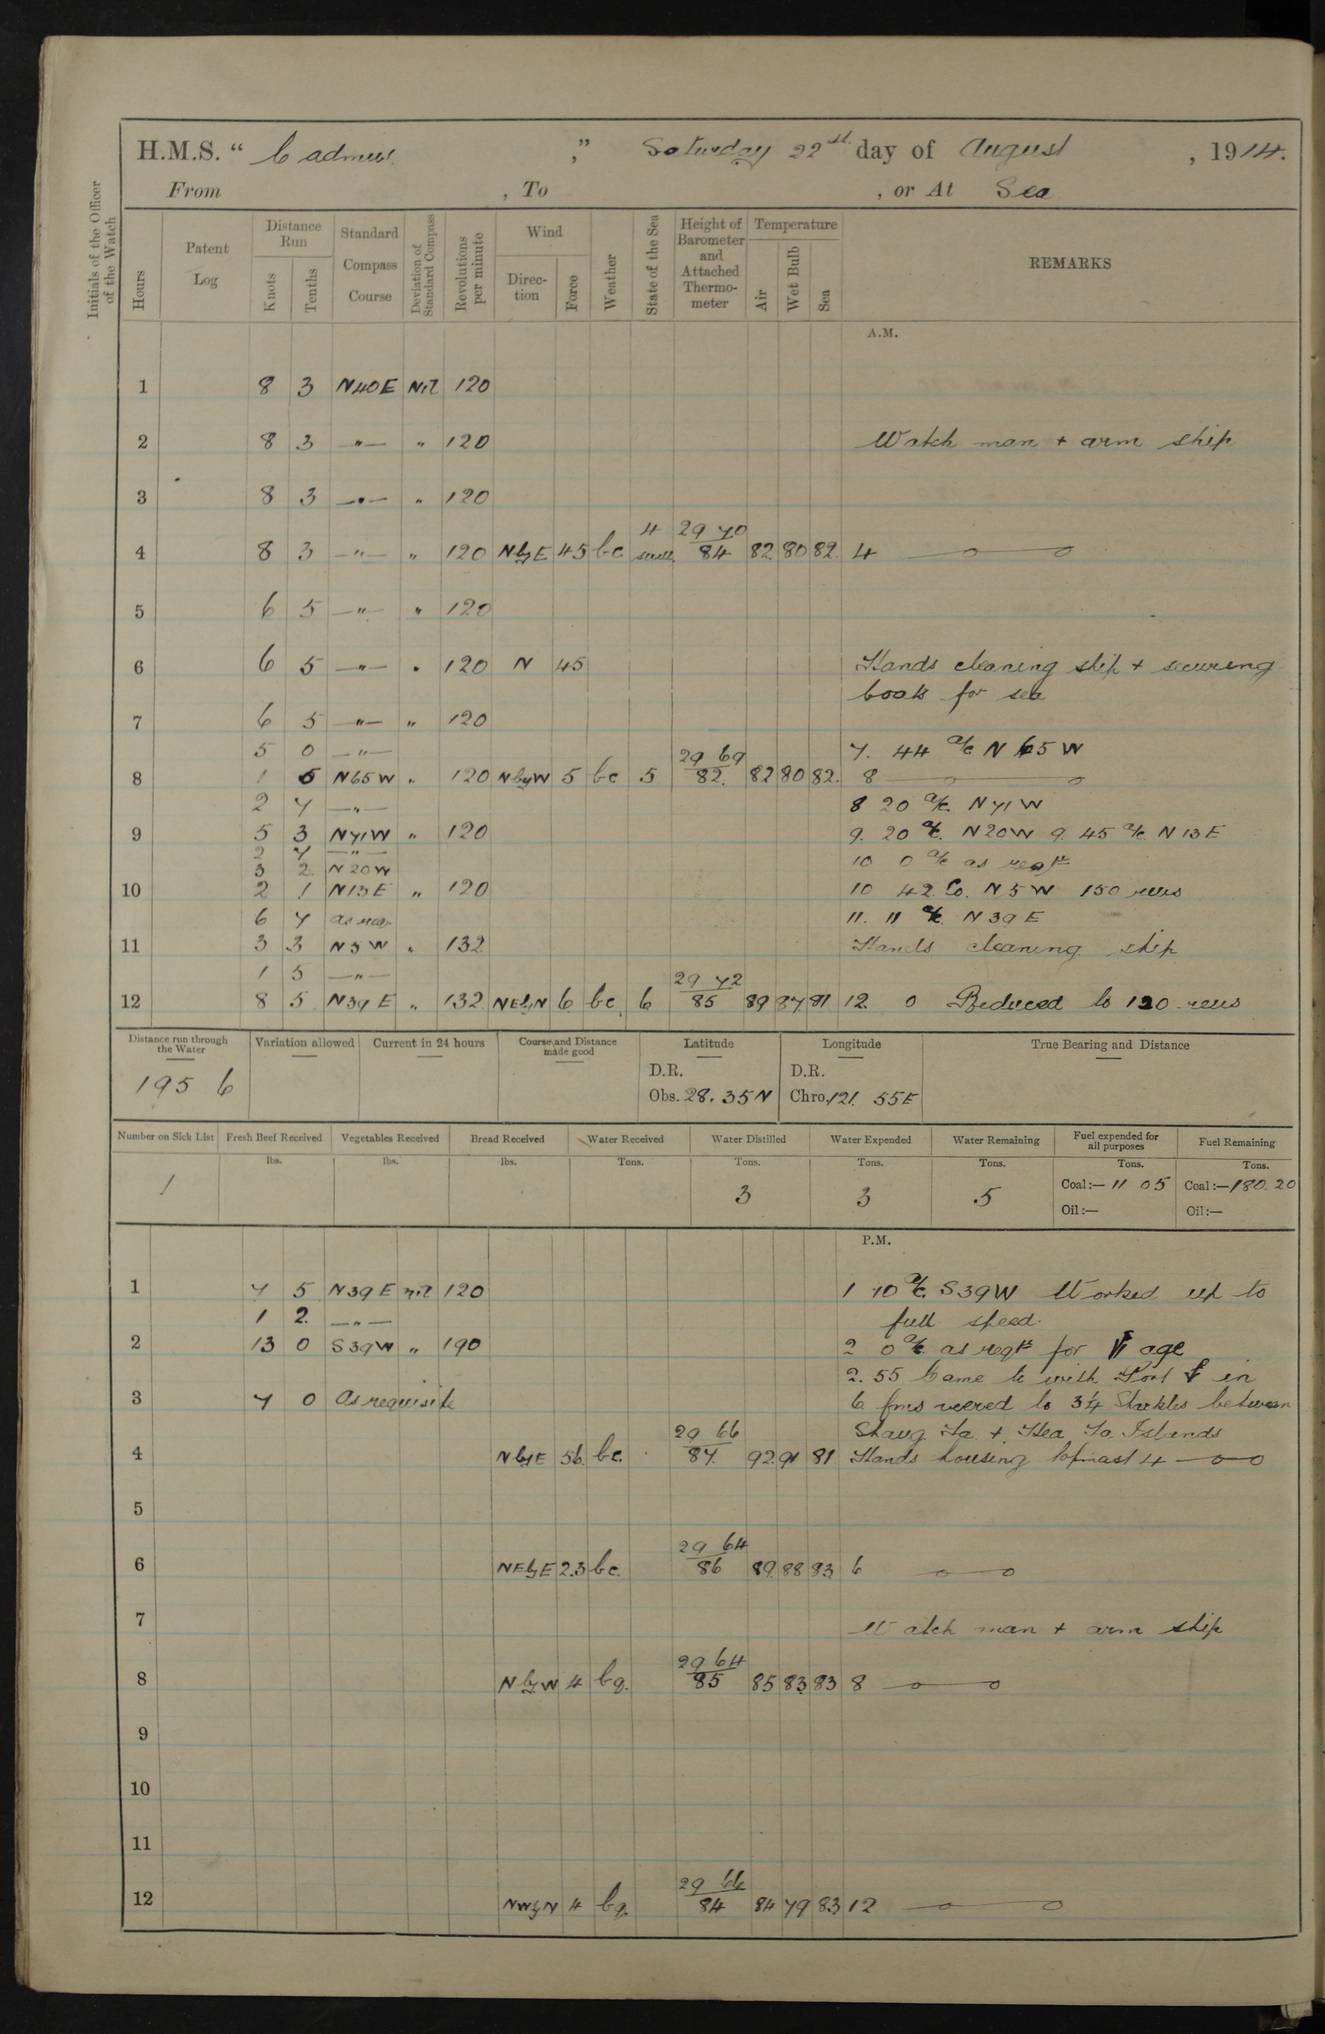 H.M.S. “ Cadmus ,” Saturday 22nd day of August , 1914.
From , To , or At Sea
Initials of the Officer of the Watch
Hours
Patent Log
Distance Run
Knots
Tenths
Standard Compass Course
Deviation of Standard Compass
Revolutions per minute
Wind
Direction
Force
Weather
State of the Sea
Height of Barometer and Attached Thermometer
Temperature
Air
Wet Bulb
Sea
REMARKS
A.M.
1 8 3 N40E Nil 120
2 8 3 —"— " 120 Watch man + arm ship
3 8 3 —"— " 120
4 29 70
4 8 3 —"— " 120 NbyE 45 bc swell 84 82 80 82 4
5 6 5 —"— " 120
6 6 5 —"— " 120 N 45 Hands cleaning ship + securing
boats for sea
7 6 5 —"— " 120
5 0 —"— 29 69 7. 44 a/c N 65 W
8 1 5 N65W " 120 NbyW 5 bc 5 82 82 80 82 8
2 7 —"— 8 20 a/c N71W
9 5 3 N71W " 120 9. 20 a/c N20W 9. 45 a/c N13E
2 7 —"—
3 2 N20W 10 0 a/c as reqte
10 2 1 N13E " 120 10 42 Co. N5W 150 revs
6 7 as req. 11. 11 a/c N39E
11 3 3 N5W " 132 Hands cleaning ship
1 5 —"— 29 72
12 8 5 N39E " 132 NEbyN 6 bc 6 85 89 87 81 12 0 Reduced to 120 revs
Distance run through the Water
Variation allowed
Current in 24 hours
Course and Distance made good
Latitude
Longitude
True Bearing and Distance
195 6
D.R. D.R.
Obs. 28. 35N Chro. 121. 55E
Number on Sick List
Fresh Beef Received
Vegetables Received
Bread Received
Water Received
Water Distilled
Water Expended
Water Remaining
Fuel expended for all purposes
Fuel Remaining
lbs. lbs. lbs. Tons. Tons. Tons. Tons. Tons. Tons.
1 3 3 5 Coal:— 11 05 Coal:—180.20
Oil:— Oil:—
P.M.
1 7 5 N39E nil 120 1 10 a/c S39W Worked up to
1 2 —"— full speed.
2 13 0 S39W " 190 2 0 a/c as reqte for age
2. 55 Came to with Port in
3 7 0 As requisite 6 fms veered to 3¼ Shackles between
29 66 Shang Ta + Hea Ta Islands
4 NbyE 56 bc. 87. 92 91 81 Hands housing topmast 4
5
29 64
6 NEbyE 2.3 bc. 86 89 88 83 6
7 Watch man + arm ship
29 64
8 NbyW 4 bq. 85 85 83 83 8
9
10
11
29 66
12 NWbyN 4 bq. 84 84 79 83 12